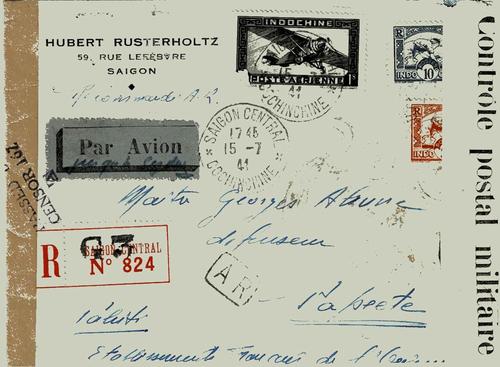 HUBERT RUSTERHOLTZ
59, RUE LEFÈBVRE
SAIGON
Recommandé A.R.
Par Avion
PASSED
CENSOR
INDOCHINE
POSTE AERIENNE
INDO 10
INDO
15-7
41
COCHINCHINE
SAIGON CENTRAL
17 45
15 -7
41
COCHINCHINE
Maître Georges
défenseur
Papeete
Tahiti
Etablissements Français de l'Océanie
R
SAIGON CENTRAL
N° 824
G3
AR
Contrôle postal militaire